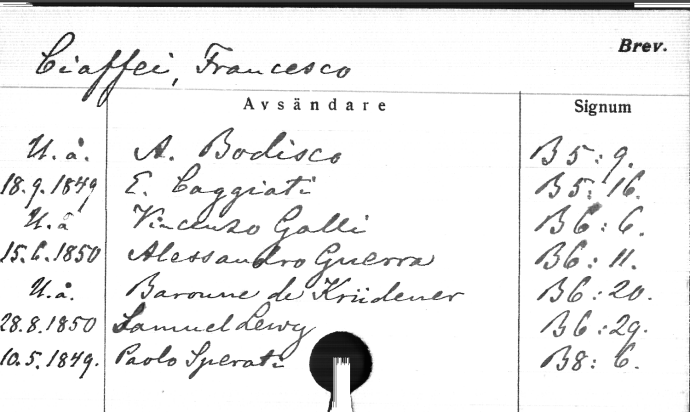 Brev.
Ciaffei, Francesco
Avsändare Signum
U.å. A. Bodisco B5:9.
18.9.1849 E. Caggiati B5:16.
U.å Vincenzo Galli B6:6.
15.6.1850 Alessandro Guerra B6:11.
U.å. Baronne de Krüdener B6:20.
28.8.1850 Samuel Lewy B6:29.
10.5.1849. Paolo Sperati B8:6.